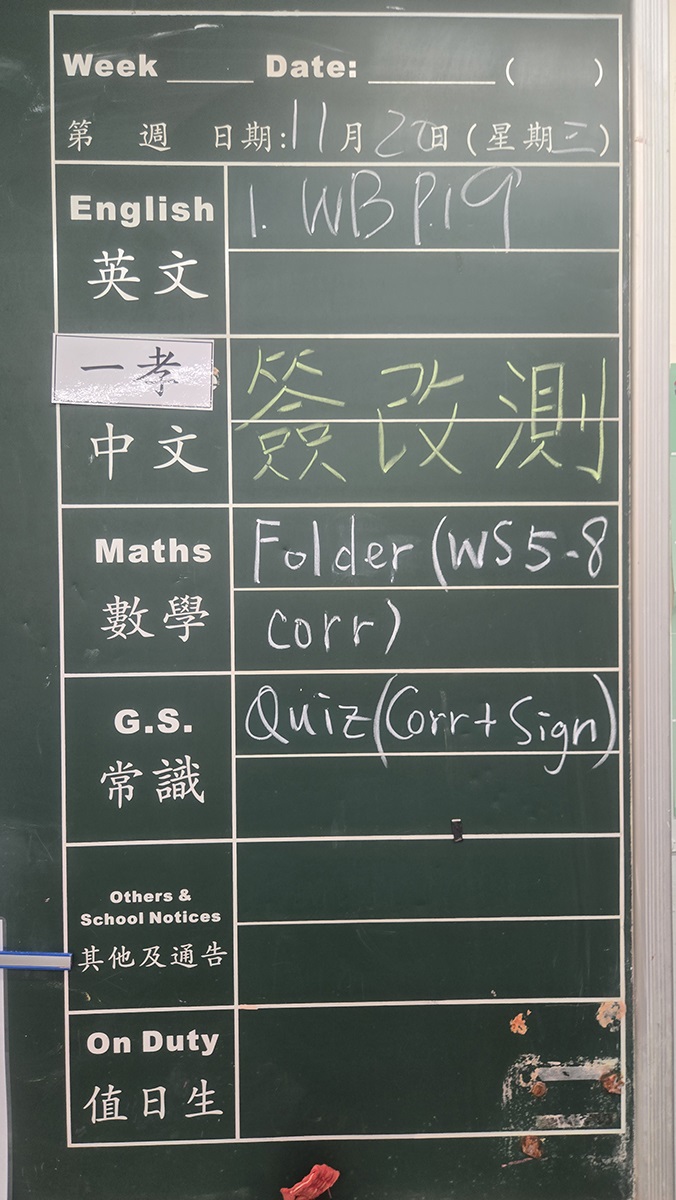 Week ____ Date: ______ (    )
第 週 日期:11月20日(星期三)
English 1. WB P.19
英文
一孝
中文 簽改測
Maths Folder(WS5-8
數學 corr)
G.S. Quiz(Corr+Sign)
常識
Others &
School Notices
其他及通告
On Duty
值日生